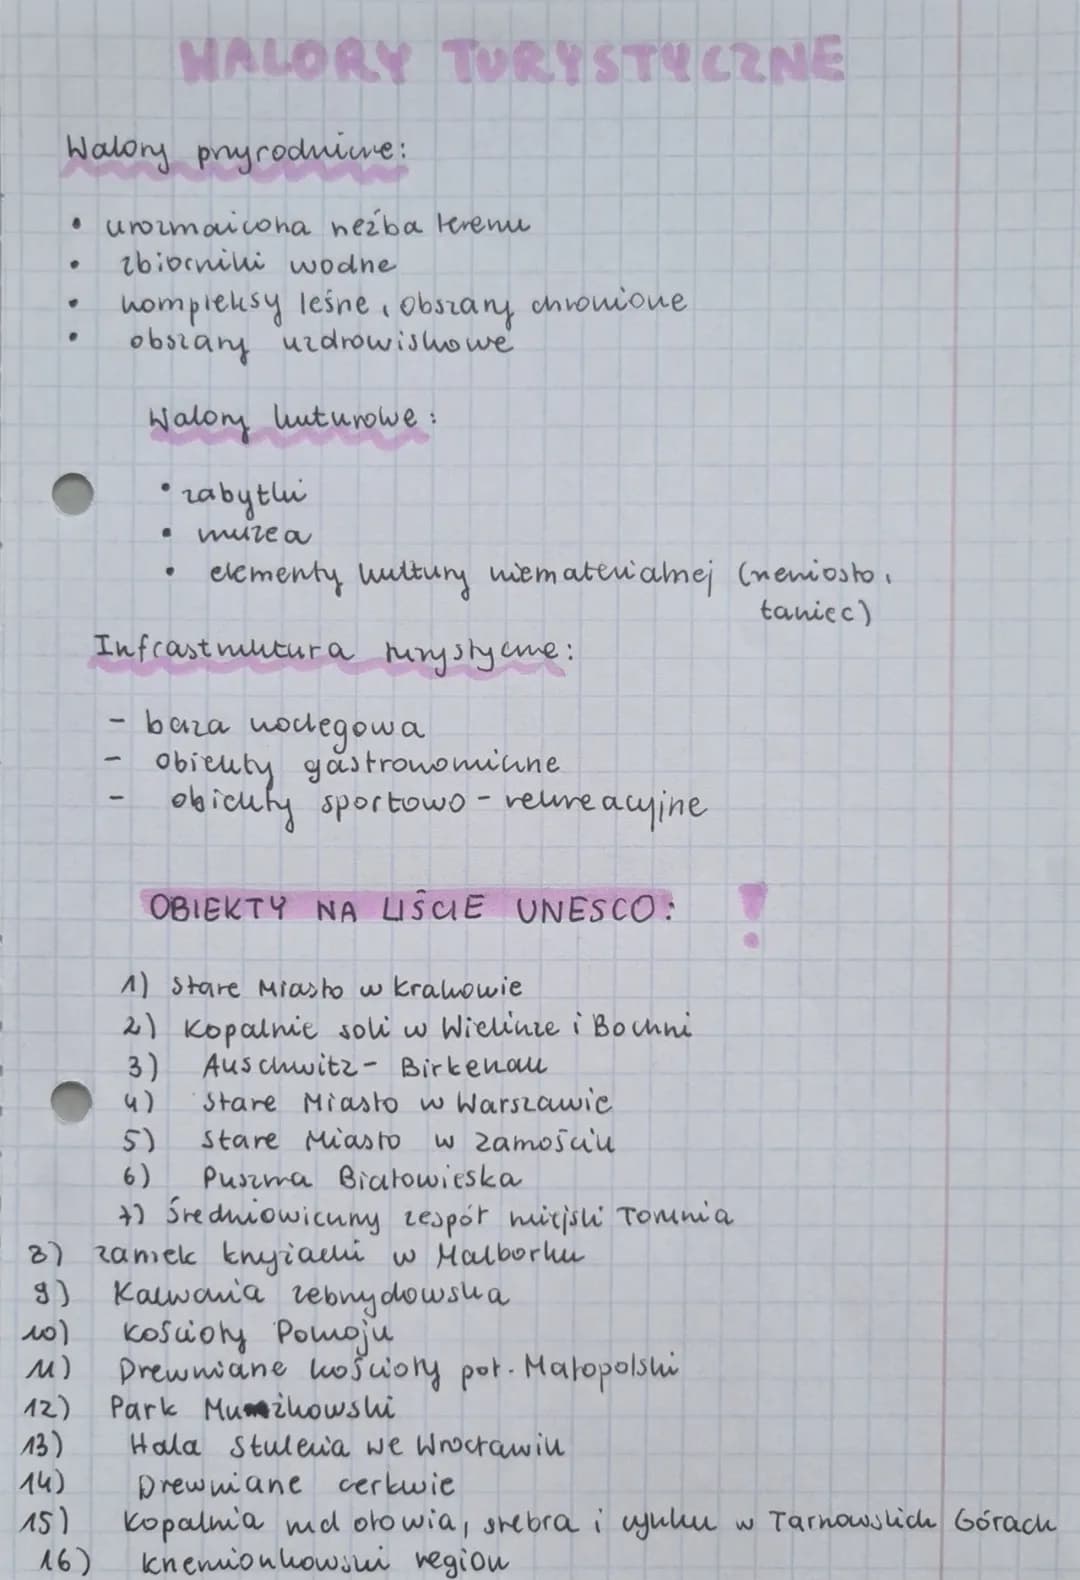 WALORY TURYSTYCZNE
Walory przyrodnicze:
• urozmaicona rzeźba terenu
• zbiorniki wodne
• kompleksy leśne, obszary chronione
• obszary uzdrowiskowe
Walory kuturowe:
• zabytki
• muzea
• elementy kultury niematerialnej (rzemiosło,
taniec)
Infrastruktura turystyczne:
- baza noclegowa
- obiekty gastronomiczne
- obiekty sportowo - rekreacyjne
OBIEKTY NA LIŚCIE UNESCO: !
1) Stare Miasto w Krakowie
2) Kopalnie soli w Wieliczce i Bochni
3) Auschwitz - Birkenau
4) Stare Miasto w Warszawie
5) Stare Miasto w Zamościu
6) Puszcza Białowieska
7) Średniowieczny zespół miejski Torunia
8) zamek krzyżacki w Malborku
9) Kalwaria zebrzydowska
10) Kościoły Pokoju
11) Drewniane kościoły poł. Małopolski
12) Park Mużkowski
13) Hala Stulecia we Wrocławiu
14) Drewniane cerkwie
15) Kopalnia rud ołowia, srebra i cynku w Tarnowskich Górach
16) krzemionkowski region